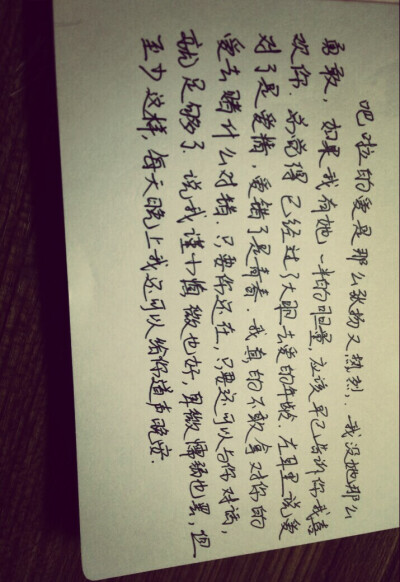 吧啦的爱是那么张扬又热烈，我没她那么
勇敢，如果我有她一半的胆量，应该早已告诉你我喜
欢你.总觉得已经过了大胆去爱的年龄.左耳里说爱
对了是爱情，爱错了是青春.我真的不敢拿对你的
爱去赌什么对错.只要你还在，只要还可以与你对话，
就足够了.说我谨小慎微也好，卑微懦弱也罢，但
至少这样，每天晚上我还可以给你道声晚安.